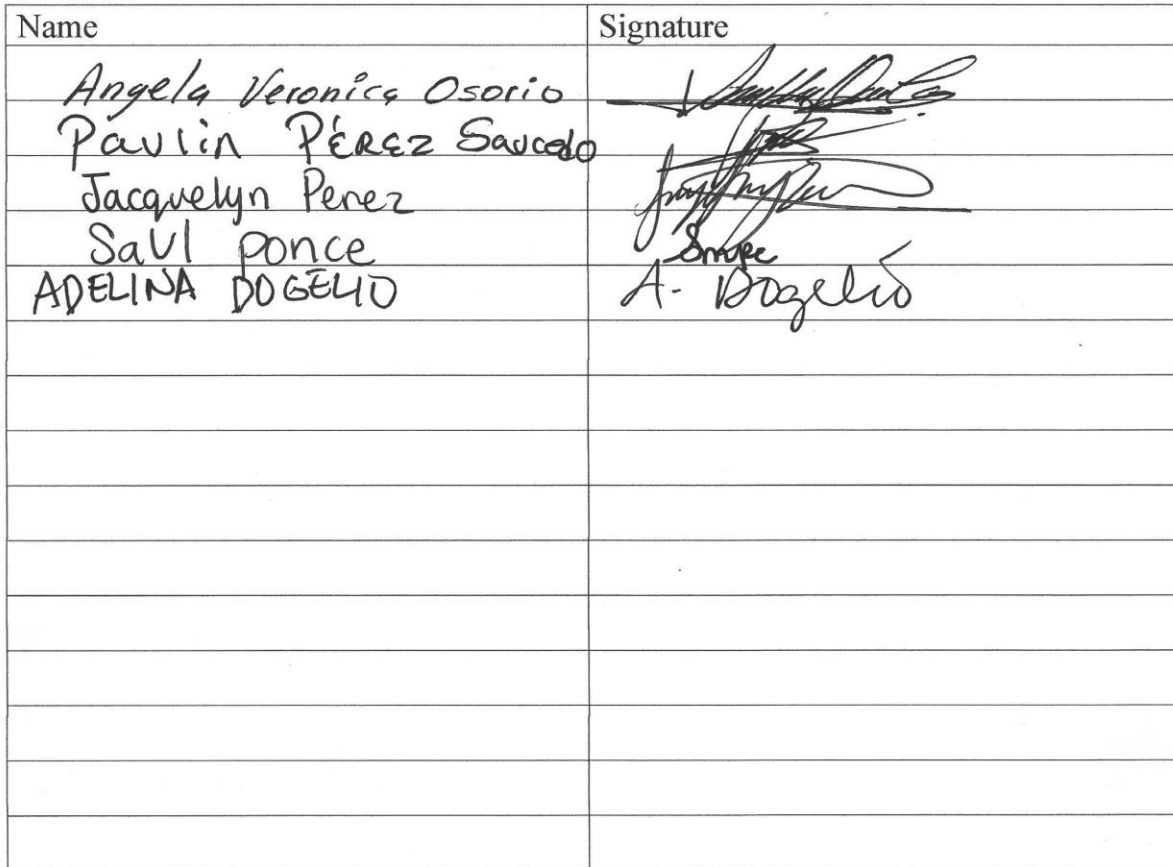 Name Signature
Angela Veronica Osorio
Paulin PÉREZ Saucedo
Jacquelyn Perez
Saul ponce
ADELINA DOGELIO A. Dogelio